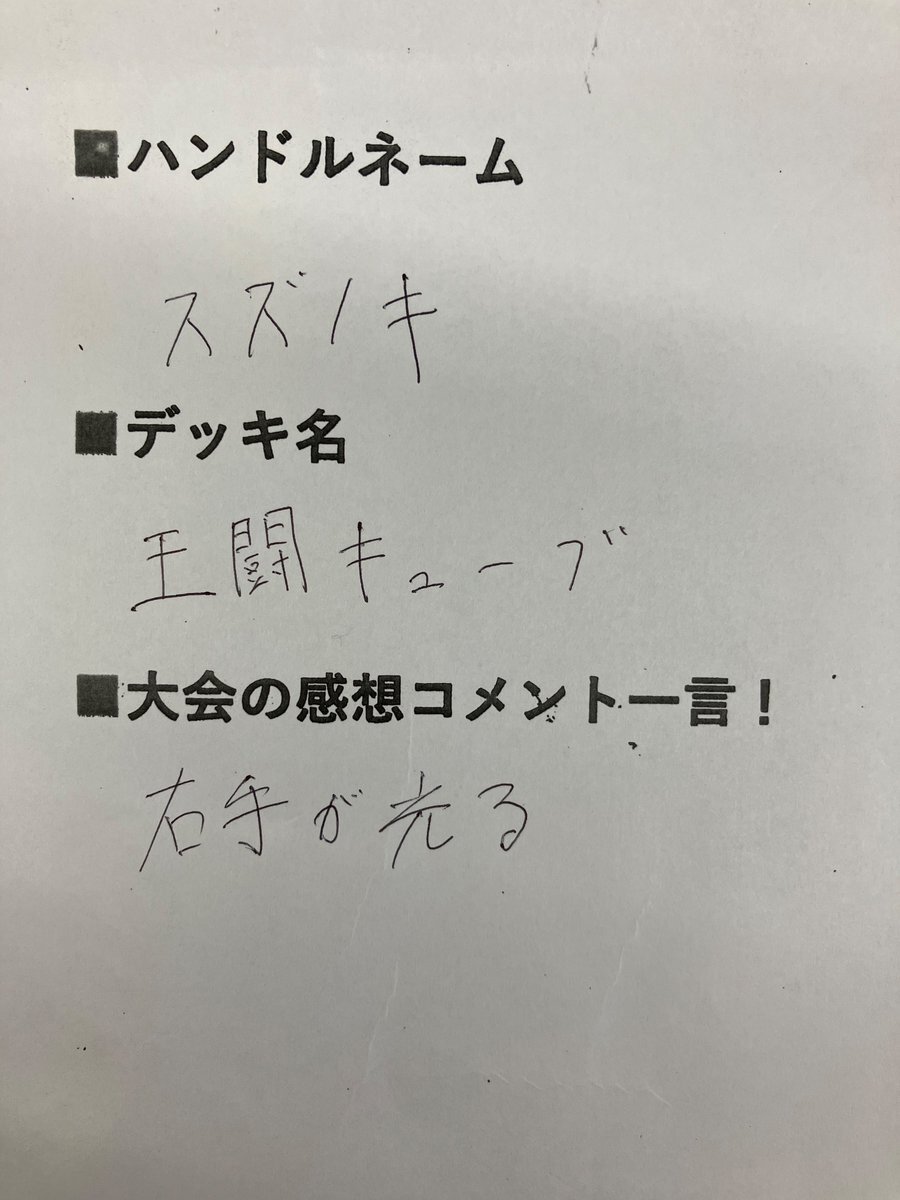 ■ハンドルネーム
スズノキ
■デッキ名
王闘キューブ
■大会の感想コメント一言！
右手が光る